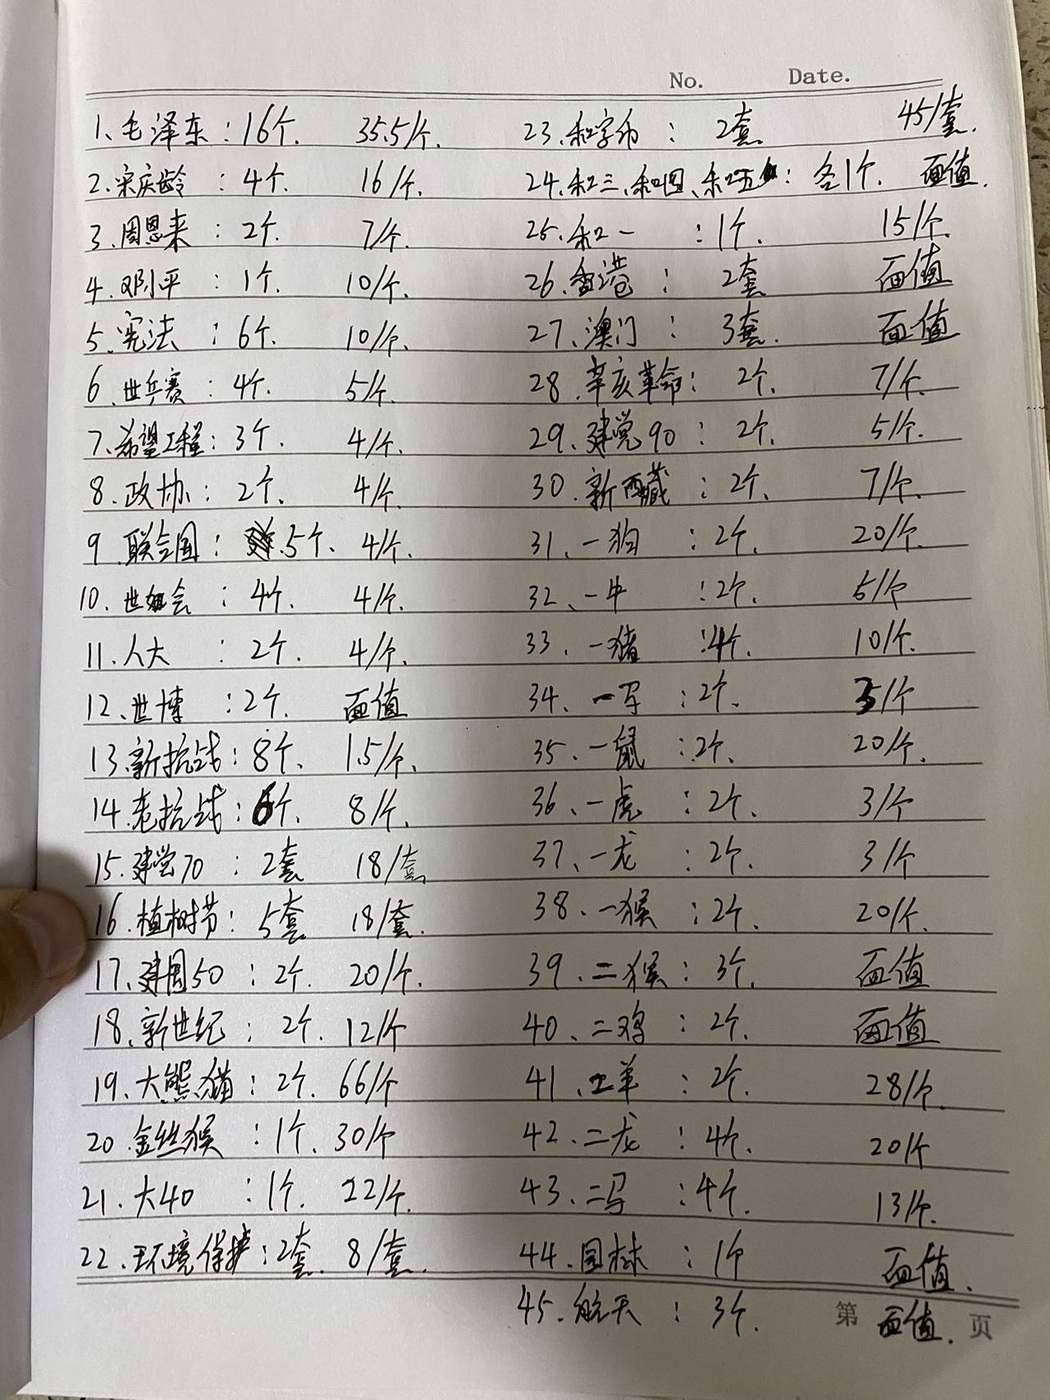 No. Date.
1、毛泽东：16个. 35.5/个.
2.宋庆龄：4个. 16/个.
3、周恩来：2个. 7/个.
4.邓小平：1个. 10/个.
5.宪法：6个. 10/个.
6.世乒赛：4个. 5/个.
7.希望工程：3个. 4/个.
8.政协：2个. 4/个.
9.联合国：5个. 4/个.
10.世妇会：4个. 4/个.
11.人大：2个. 4/个.
12、世博：2个. 面值
13.新抗战：8个. 1.5/个.
14.老抗战：6个. 8/个.
15.建党70：2套 18/套
16.植树节：5套 18/套.
17.建国50：2个. 20/个.
18.新世纪：2个. 12/个
19、大熊猫：2个. 66/个
20.金丝猴：1个. 30/个
21.大40：1个. 22/个
22.环境保护：2套. 8/套.
23.和字币：2套 45/套.
24.和三、和四、和五：各1个. 面值.
25.和一：1个. 15/个.
26.香港：2套 面值
27、澳门：3套. 面值
28.辛亥革命：2个. 7/个.
29、建党90：2个. 5/个.
30.新西藏：2个. 7/个.
31、一狗：2个. 20/个.
32、一牛：2个. 5/个
33、一猪：4个. 10/个.
34、一军：2个. 3/个
35、一鼠：2个. 20/个.
36、一虎：2个. 3/个
37、一龙：2个. 3/个
38.一猴：2个. 20/个.
39.二猴：3个. 面值
40、二鸡：2个. 面值
41、二羊：2个. 28/个.
42.二龙：4个. 20/个
43.二马：4个. 13/个.
44.园林：1个 面值.
45.航天：3个. 面值.
第 页